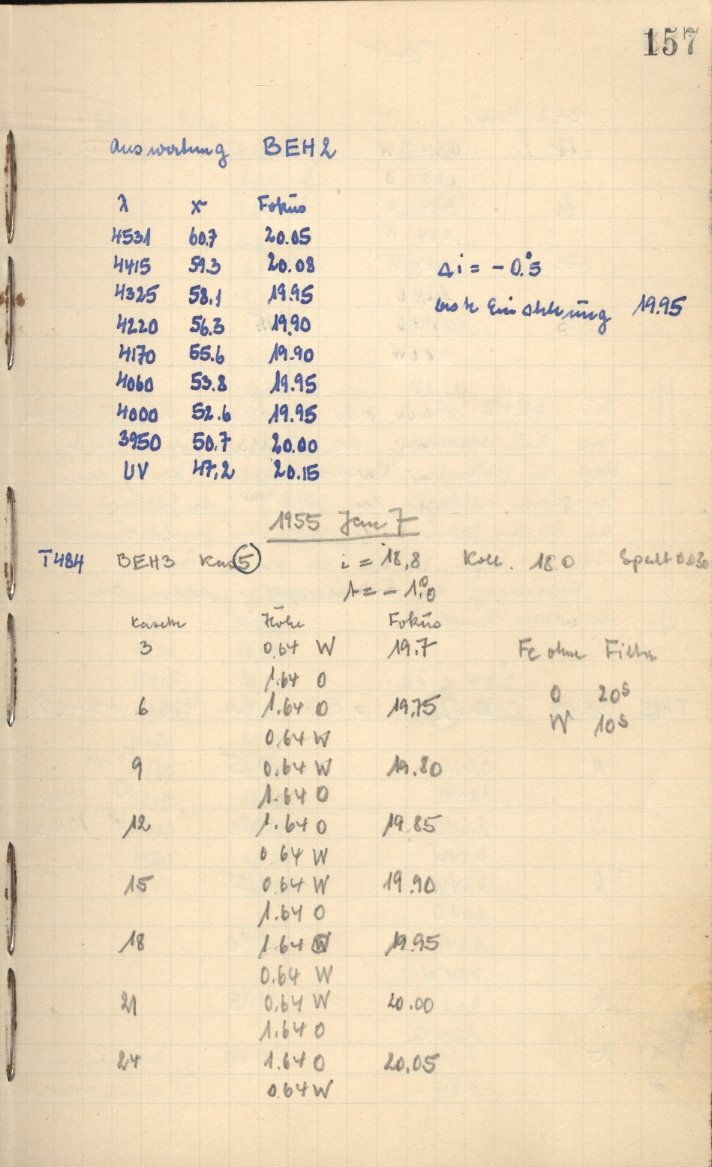 157
Auswertung BEH2
λ x Fokus
4531 60.7 20.05
4415 59.3 20.08
4325 58.1 19.95
4220 56.3 19.90
4170 55.6 19.90
4060 53.8 19.95
4000 52.6 19.95
3950 50.7 20.00
UV 47,2 20.15
Δi = - 0.°5
beste Einstellung 19.95
1955 Jan 7
T484 BEH3 Kas 5 i = 18,8 Koll. 18.0 Spalt 0.030
= - 1.°0
Kasette Höhe Fokus
3 0.64 W 19.7 Fe ohne Filter
1.64 O O 20s
6 1.64 O 19.75 W 10s
0.64 W
9 0.64 W 19.80
1.64 O
12 1.64 O 19.85
0.64 W
15 0.64 W 19.90
1.64 O
18 1.64 19.95
0.64 W
21 0.64 W 20.00
1.64 O
24 1.64 O 20.05
0.64 W